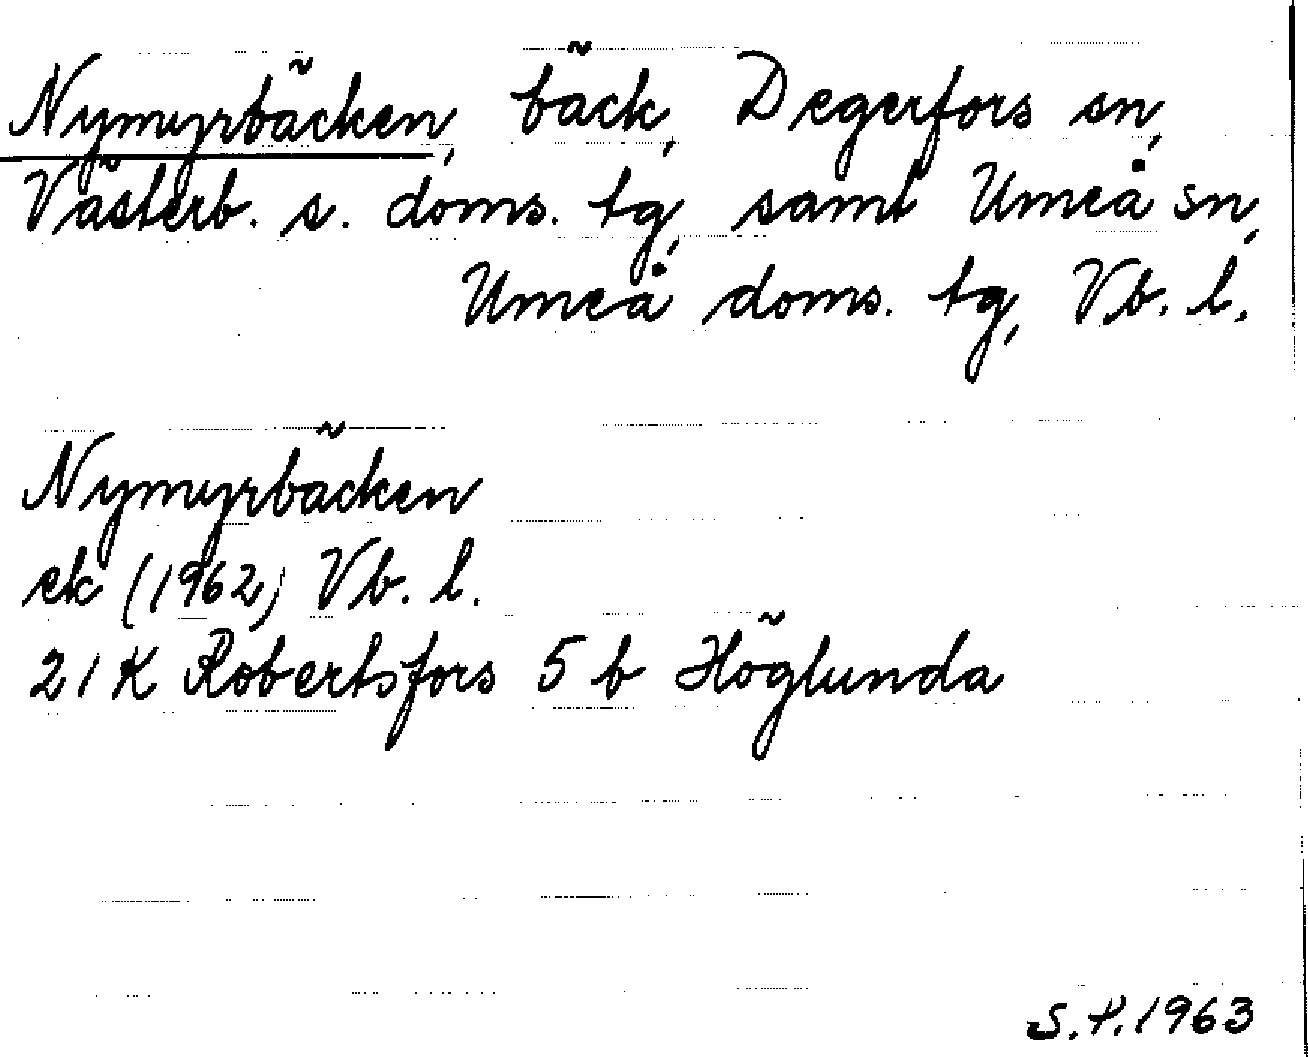 Nymyrbäcken, bäck, Degerfors sn,
Västerb. s. doms. tg, samt Umeå sn,
Umeå doms. tg, Vb. l.
Nymyrbäcken
ek (1962) Vb. l.
21 K Robertsfors 5 b Höglunda
S.P. 1963